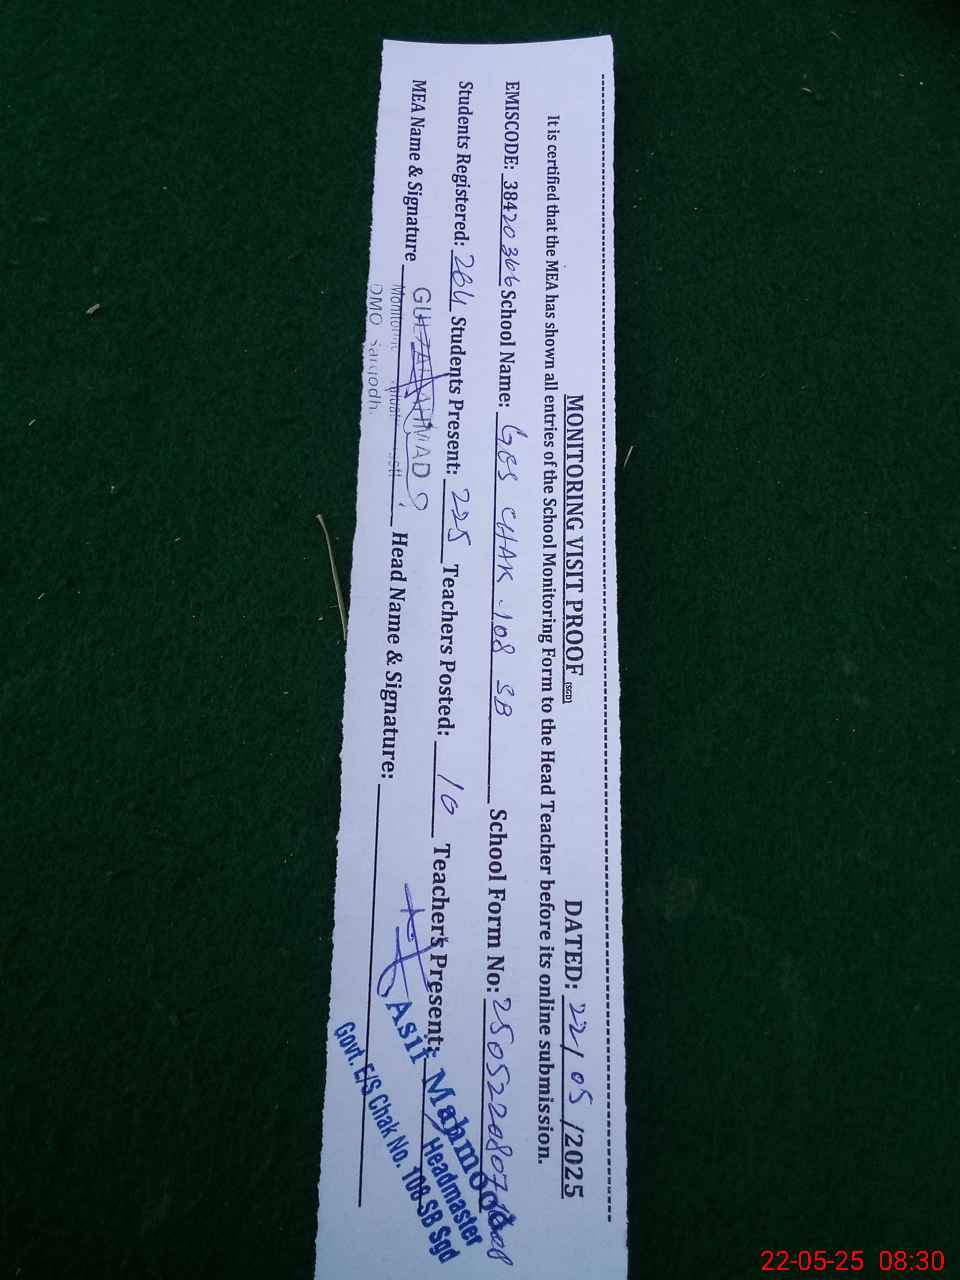 MONITORING VISIT PROOF (SGD) DATED: 22/05/2025
It is certified that the MEA has shown all entries of the School Monitoring Form to the Head Teacher before its online submission.
EMISCODE: 38420366 School Name: GES CHAK 108 SB School Form No: 2505220807
Students Registered: 264 Students Present: 225 Teachers Posted: 10 Teachers Present:
MEA Name & Signature Head Name & Signature:
AHMAD
DMO Sargodh.
Asif Mahmood
Headmaster
Govt. E/S Chak No. 108 SB Sgd
22-05-25 08:30